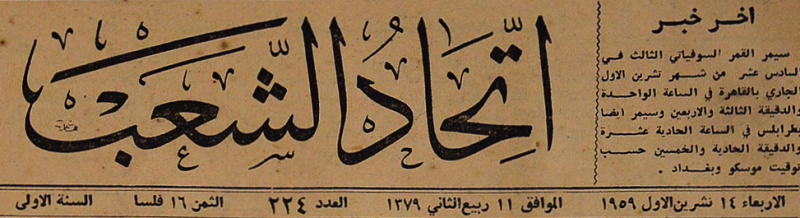 آخر خبر
سيمر القمر السوفياتي الثالث في
السادس عشر من شهر تشرين الاول
الجاري بالقاهرة في الساعة الواحدة
والدقيقة الثالثة والاربعين وسيمر ايضا
بطرابلس في الساعة الحادية عشرة
والدقيقة الحادية والخمسين حسب
توقيت موسكو وبغداد .
اتحاد الشعب
الاربعاء ١٤ تشرين الاول ١٩٥٩ الموافق ١١ ربيع الثاني ١٣٧٩ العدد ٢٢٤ الثمن ١٦ فلسا السنة الاولى